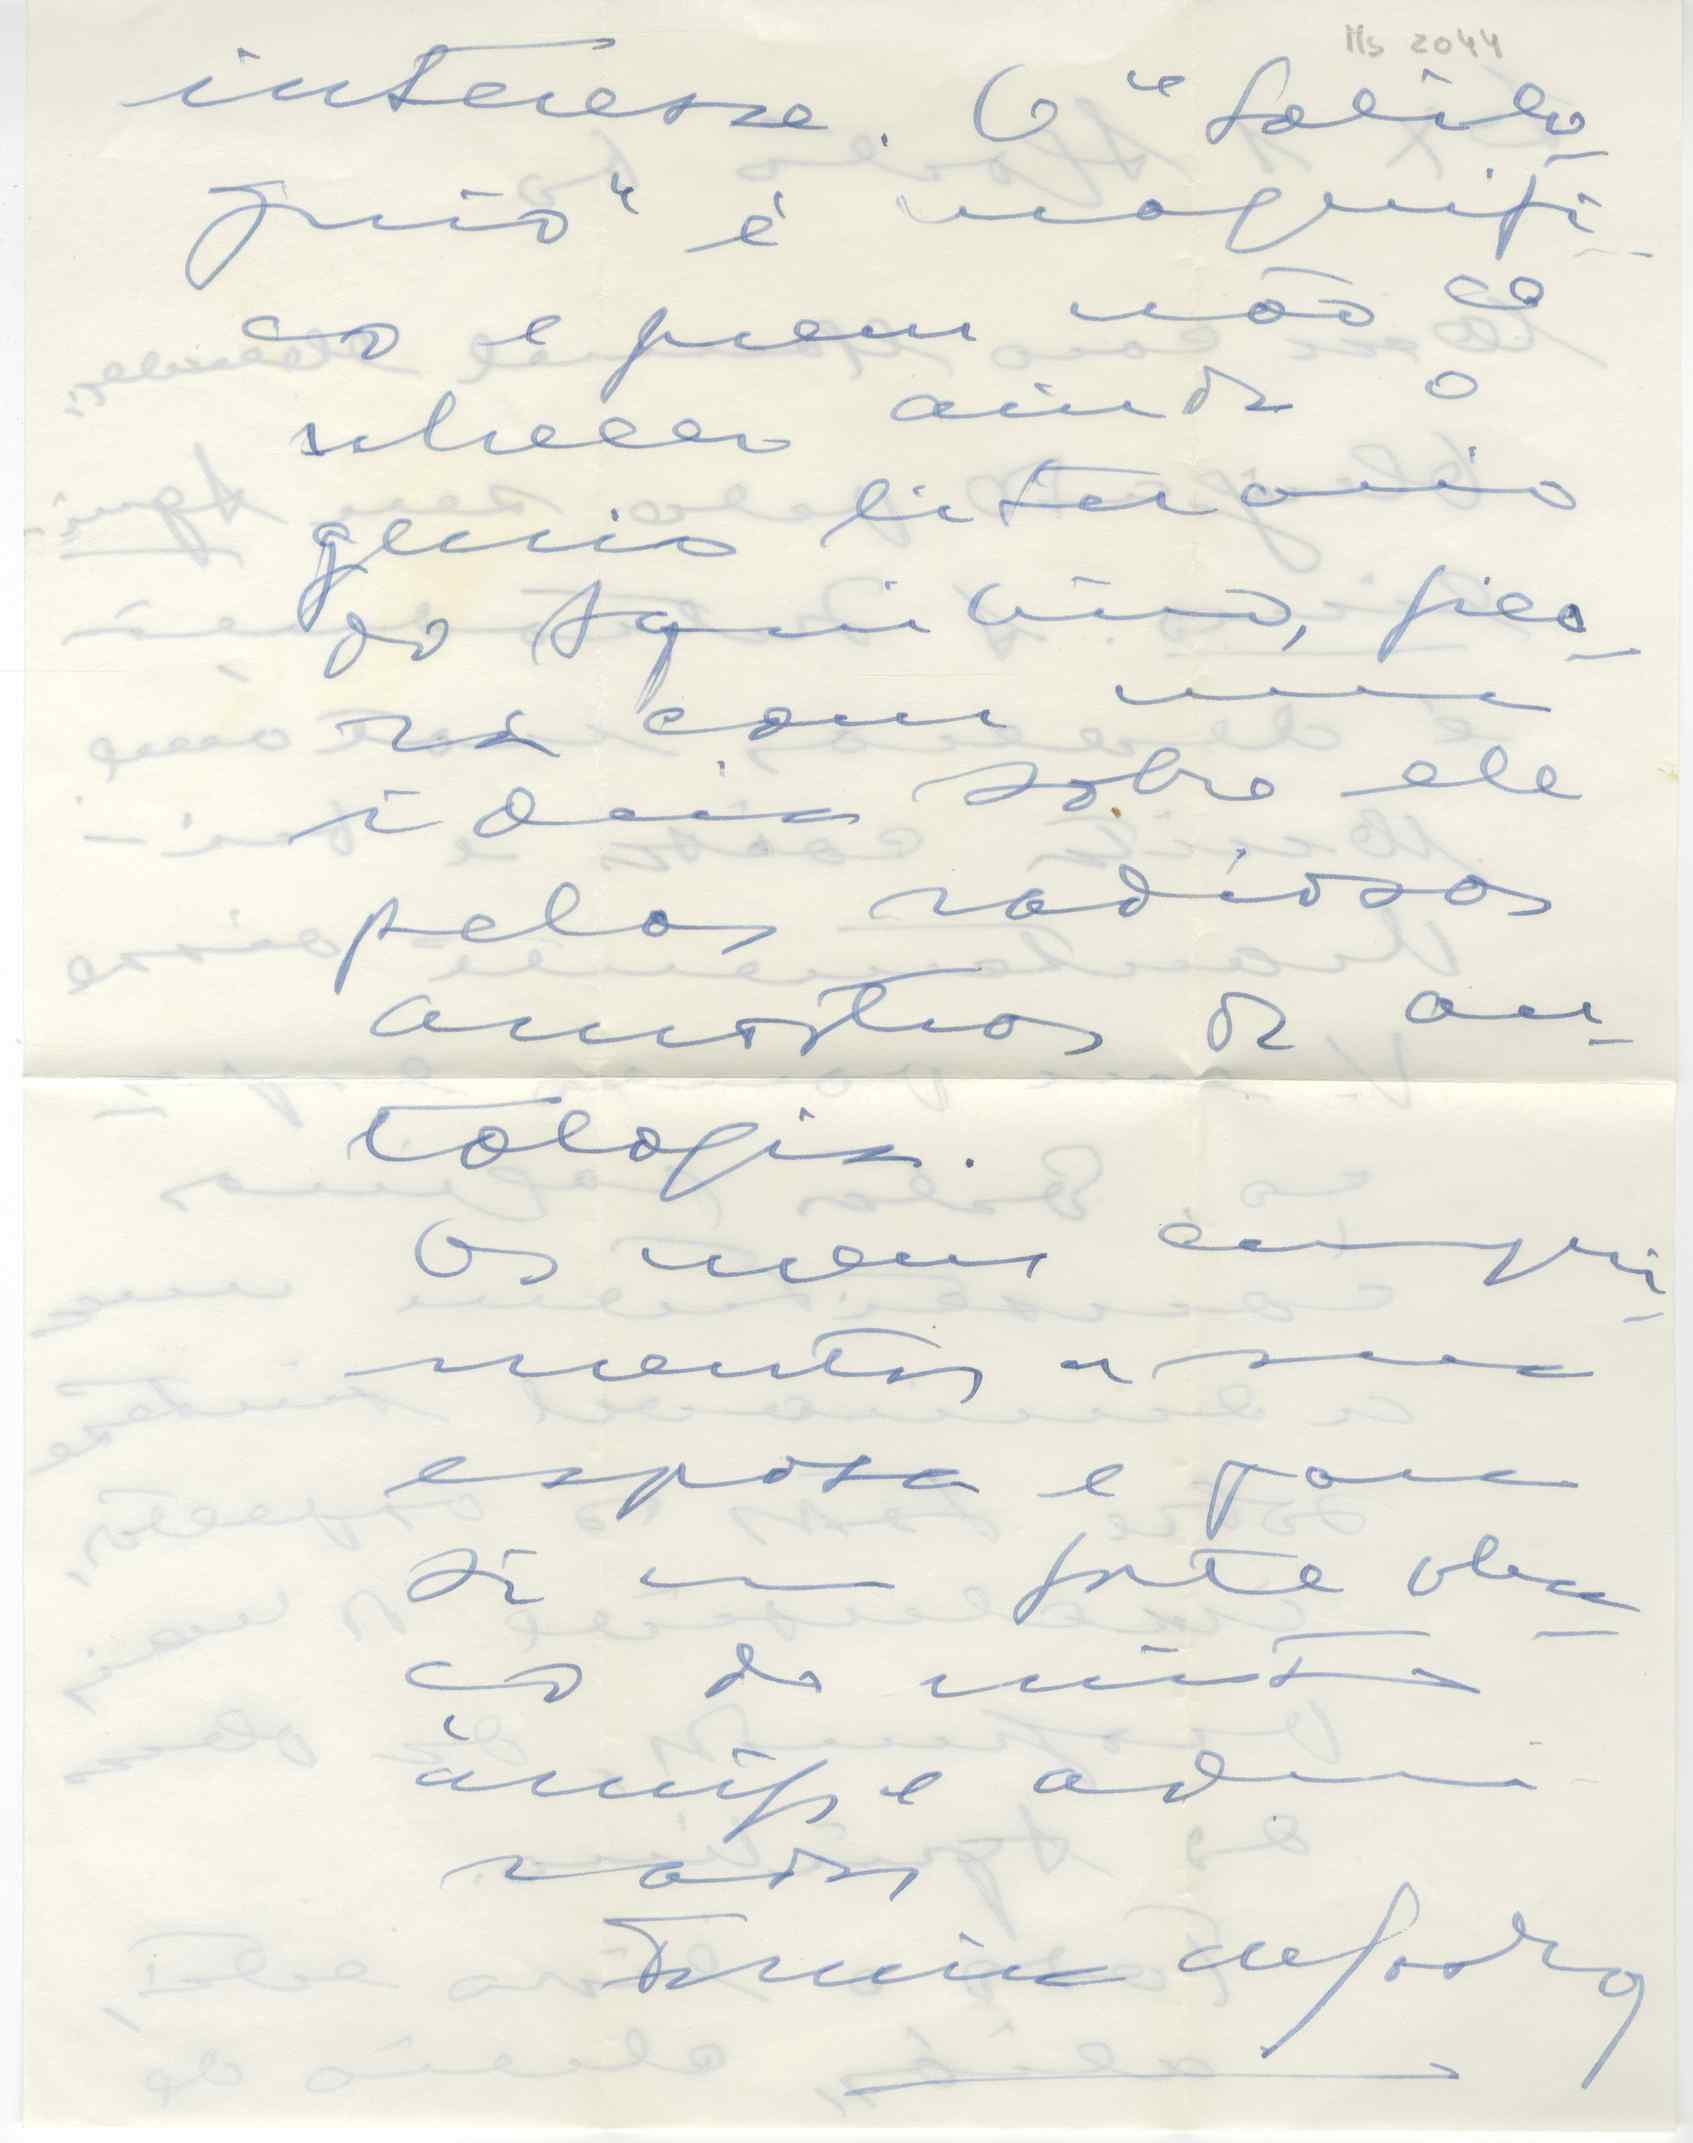 Ms 2044
interesse. O "Soliló-
quio" é magnifi-
co e quem não co
nhecer ainda o
genio literario
do Aquilino, fica-
rá com uma
ideia sobre ele
pelas radiosas
amostras da an-
tologia.
Os meus cumpri-
mentos a sua
esposa e para
si um forte abra-
ço do muito
amigo e admi
rador
Ferreira de Castro